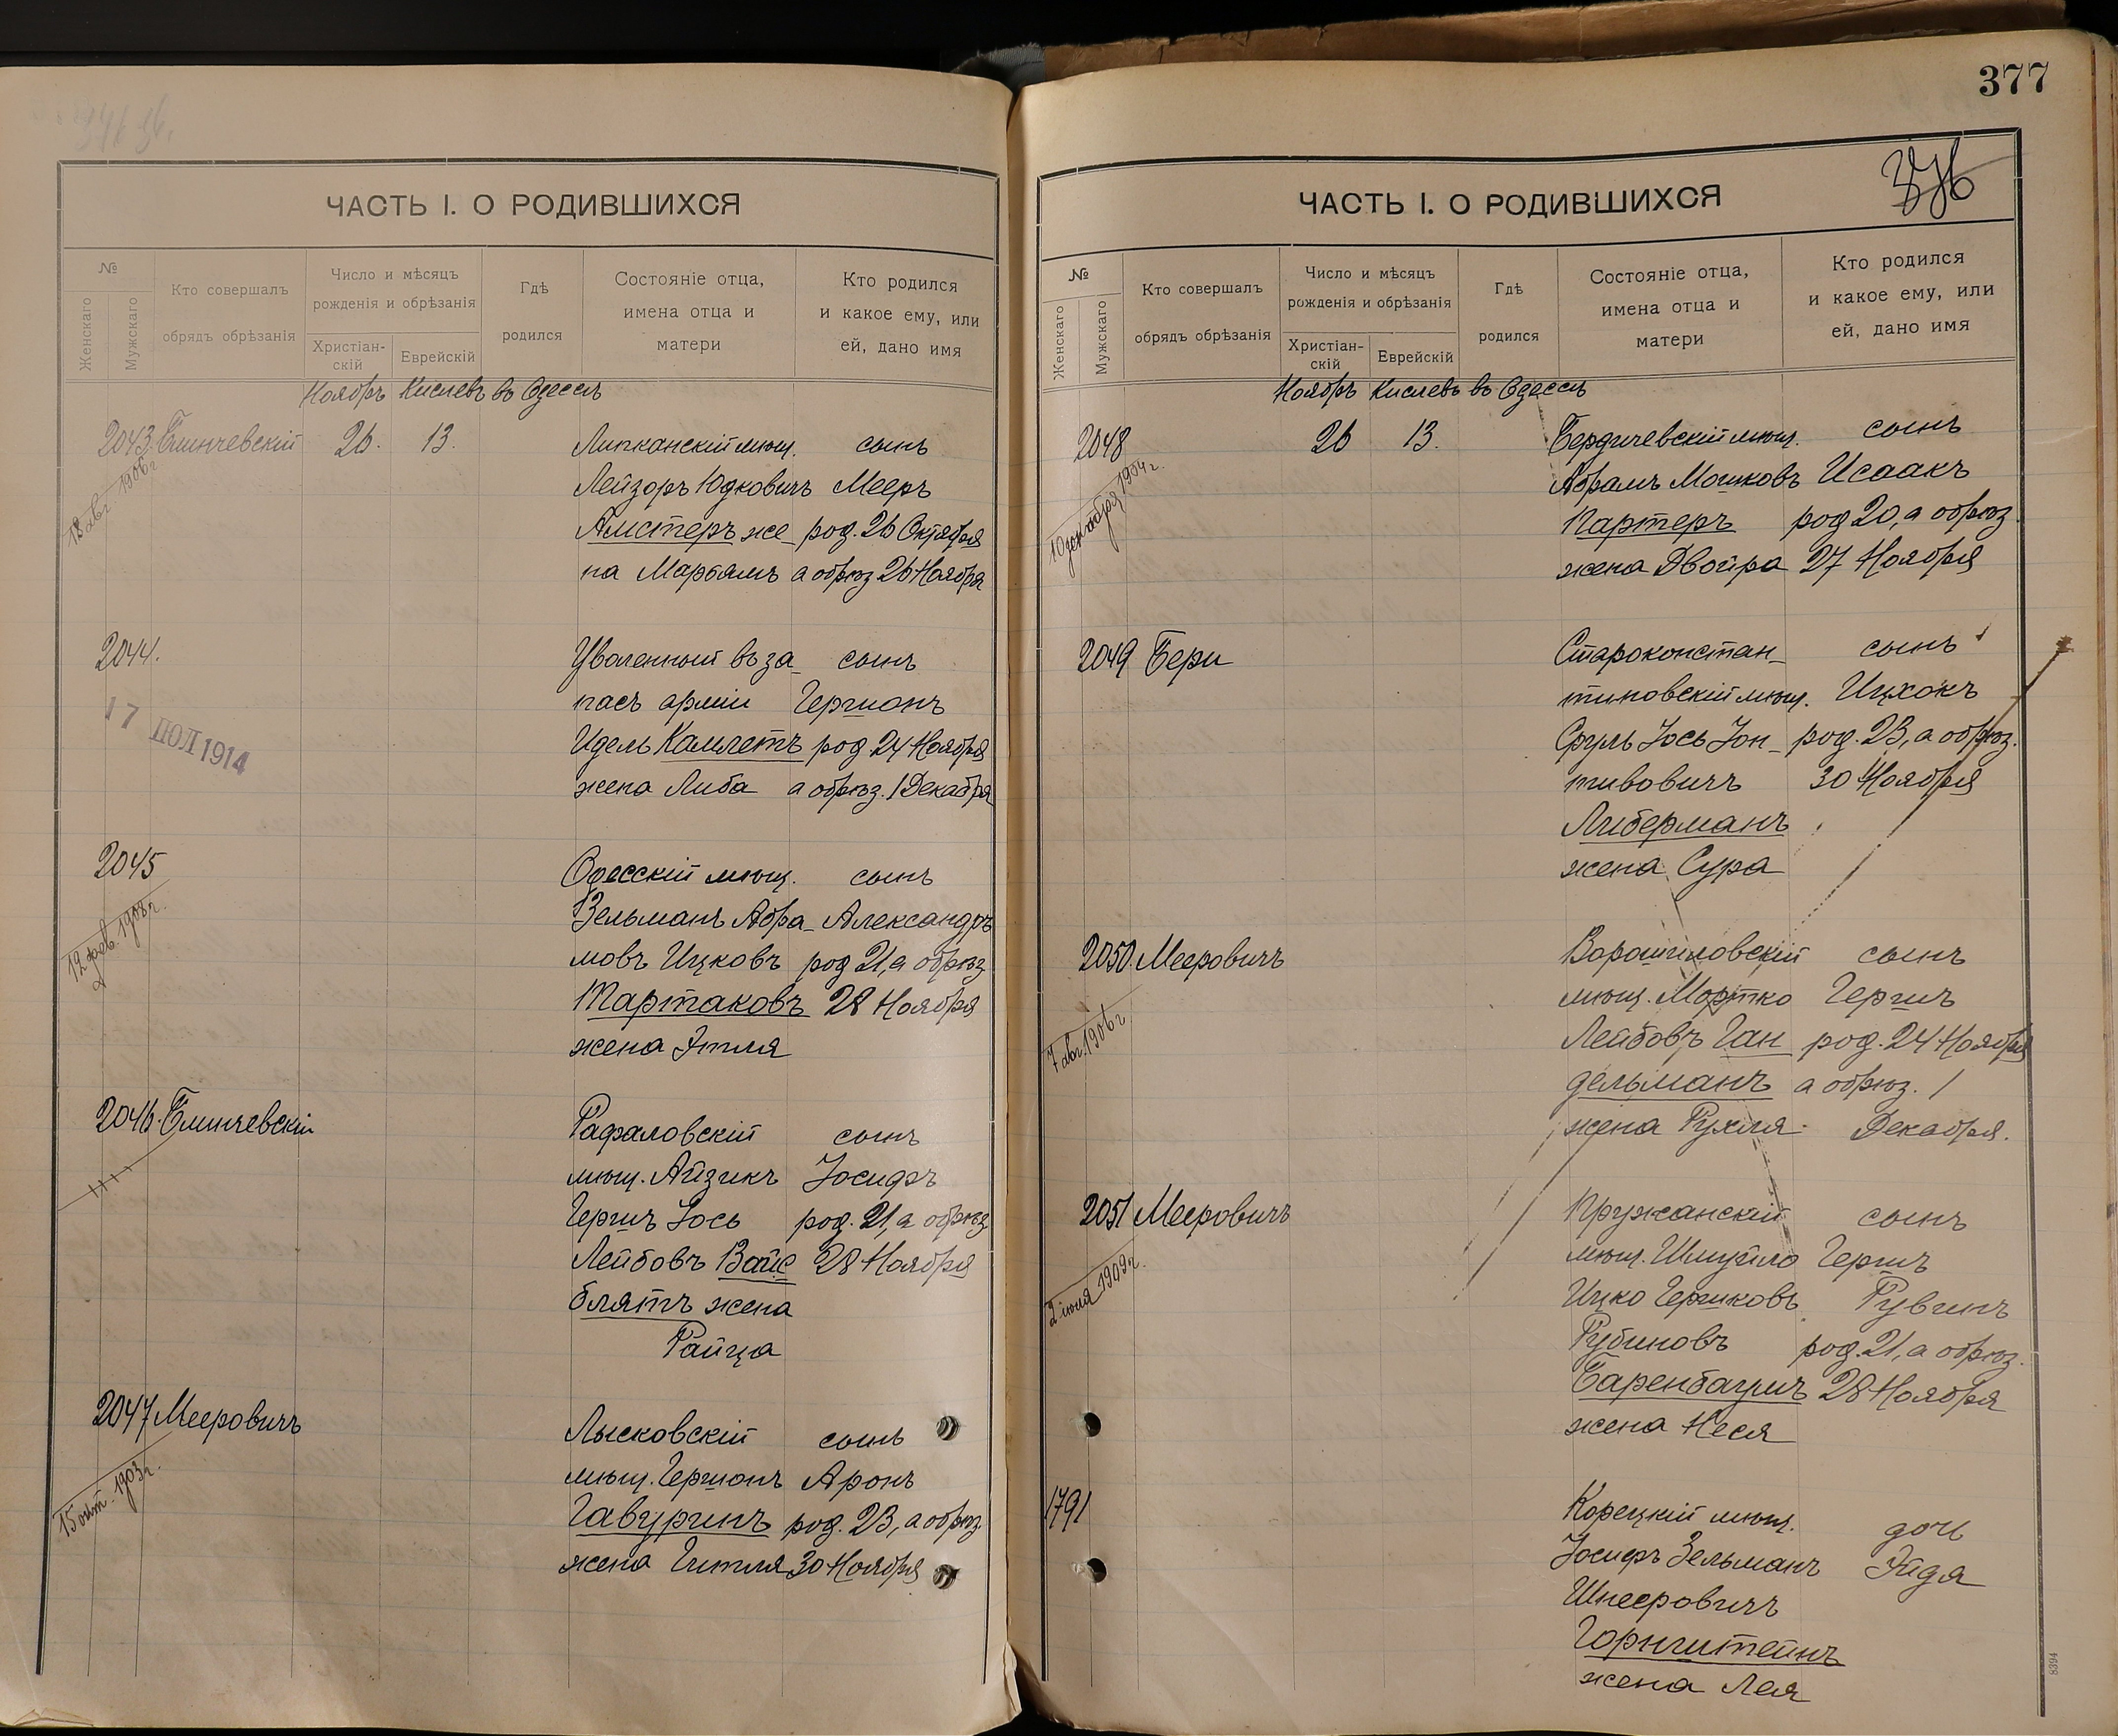 377
376
ЧАСТЬ I. О РОДИВШИХСЯ
№
Женскаго
Мужскаго
Кто совершалъ
обрядъ обрѣзанія
Число и мѣсяцъ
рожденія и обрѣзанія
Христіан-
скій
Еврейскій
Гдѣ
родился
Состояніе отца,
имена отца и
матери
Кто родился
и какое ему, или
ей, дано имя
Ноябрь Кислевъ въ Одессѣ
2043 Блинчевскій 26. 13. Липканскій мѣщ. сынъ
18 авг 1906 г
Лейзоръ Юдковичъ Мееръ
Амстеръ же- род. 26 Октября
на Марьямъ а обрѣз 26 Ноября
2044. Уволенный въ за- сынъ
17 ІЮЛ 1914
пасъ арміи Гершонъ
Идель Камлетъ род 24 Ноября
жена Либа а обрѣз. 1 Декабря
2045 Одесскій мѣщ. сынъ
12 фев. 1908 г.
Зельманъ Абра- Александръ
мовъ Ицковъ род 21, а обрѣз
Тартаковъ 28 Ноября
жена Этля
2046. Блинчевскій Рафаловскій сынъ
мѣщ. Айзикъ Іосифъ
Гершъ Іось род. 21, а обрѣз
Лейбовъ Вайс 28 Ноября
блятъ жена
Райца
2047 Мееровичъ Лысковскій сынъ
15 окт. 1903 г.
мѣщ. Гершонъ Аронъ
Гавургинъ род. 23, а обрѣз.
жена Гитля 30 Ноября
ЧАСТЬ I. О РОДИВШИХСЯ
№
Женскаго
Мужскаго
Кто совершалъ
обрядъ обрѣзанія
Число и мѣсяцъ
рожденія и обрѣзанія
Христіан-
скій
Еврейскій
Гдѣ
родился
Состояніе отца,
имена отца и
матери
Кто родился
и какое ему, или
ей, дано имя
Ноябрь Кислевъ въ Одессѣ
2048 26 13. Бердичевскій мѣщ. сынъ
10 декабря 1904 г.
Абрамъ Мошковъ Исаакъ
Партеръ род 20, а обрѣз.
жена Двойра 27 Ноября
2049 Бери Староконстан- сынъ
тиновскій мѣщ. Ицхокъ
Сруль Іось Іон- род. 23, а обрѣз.
тивовичъ 30 Ноября
Либерманъ
жена Сура
2050. Мееровичъ Ворошиловскій сынъ
7 авг. 1906 г
мѣщ. Мортко Гершъ
Лейбовъ Ган род. 24 Ноября
дельманъ а обрѣз. 1
жена Рухля. Декабря.
2051 Мееровичъ Пружанскій сынъ
2 іюля 1909 г.
мѣщ. Шмуйло Гершъ
Ицко Гершковъ Рувинъ
Рубиновъ род. 21, а обрѣз.
Баренбаумъ 28 Ноября
жена Неся
1791 Корецкій мѣщ. дочь
Іосифъ Зельманъ Эйдя
Шнееровичъ
Горнштейнъ
жена Лея
8394